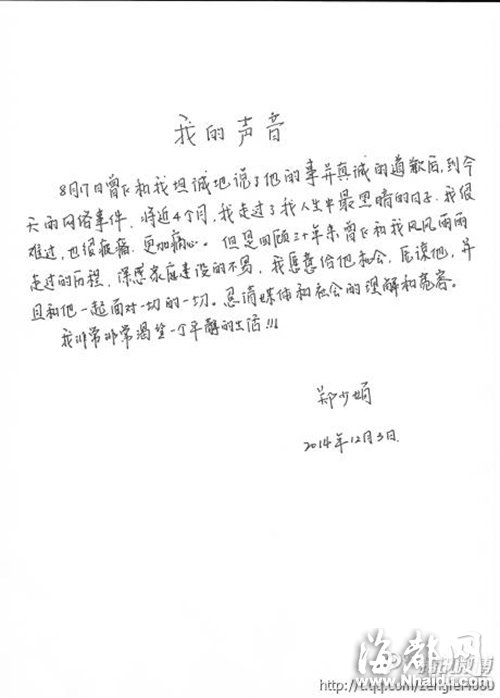 我的声音
8月17日曾飞和我坦诚地说了他的事并真诚的道歉后,到今
天的网络事件,将近4个月,我走过了我人生中最黑暗的日子,我很
难过,也很疲惫,更加痛心。但是回顾三十年来曾飞和我风风雨雨
走过的历程,深感家庭建设的不易,我愿意给他机会,原谅他,并
且和他一起面对一切的一切。恳请媒体和社会的理解和宽容。
我非常非常渴望一个平静的生活!!!
郑少娟
2014年12月3日
海都网
www.Nhaidu.com